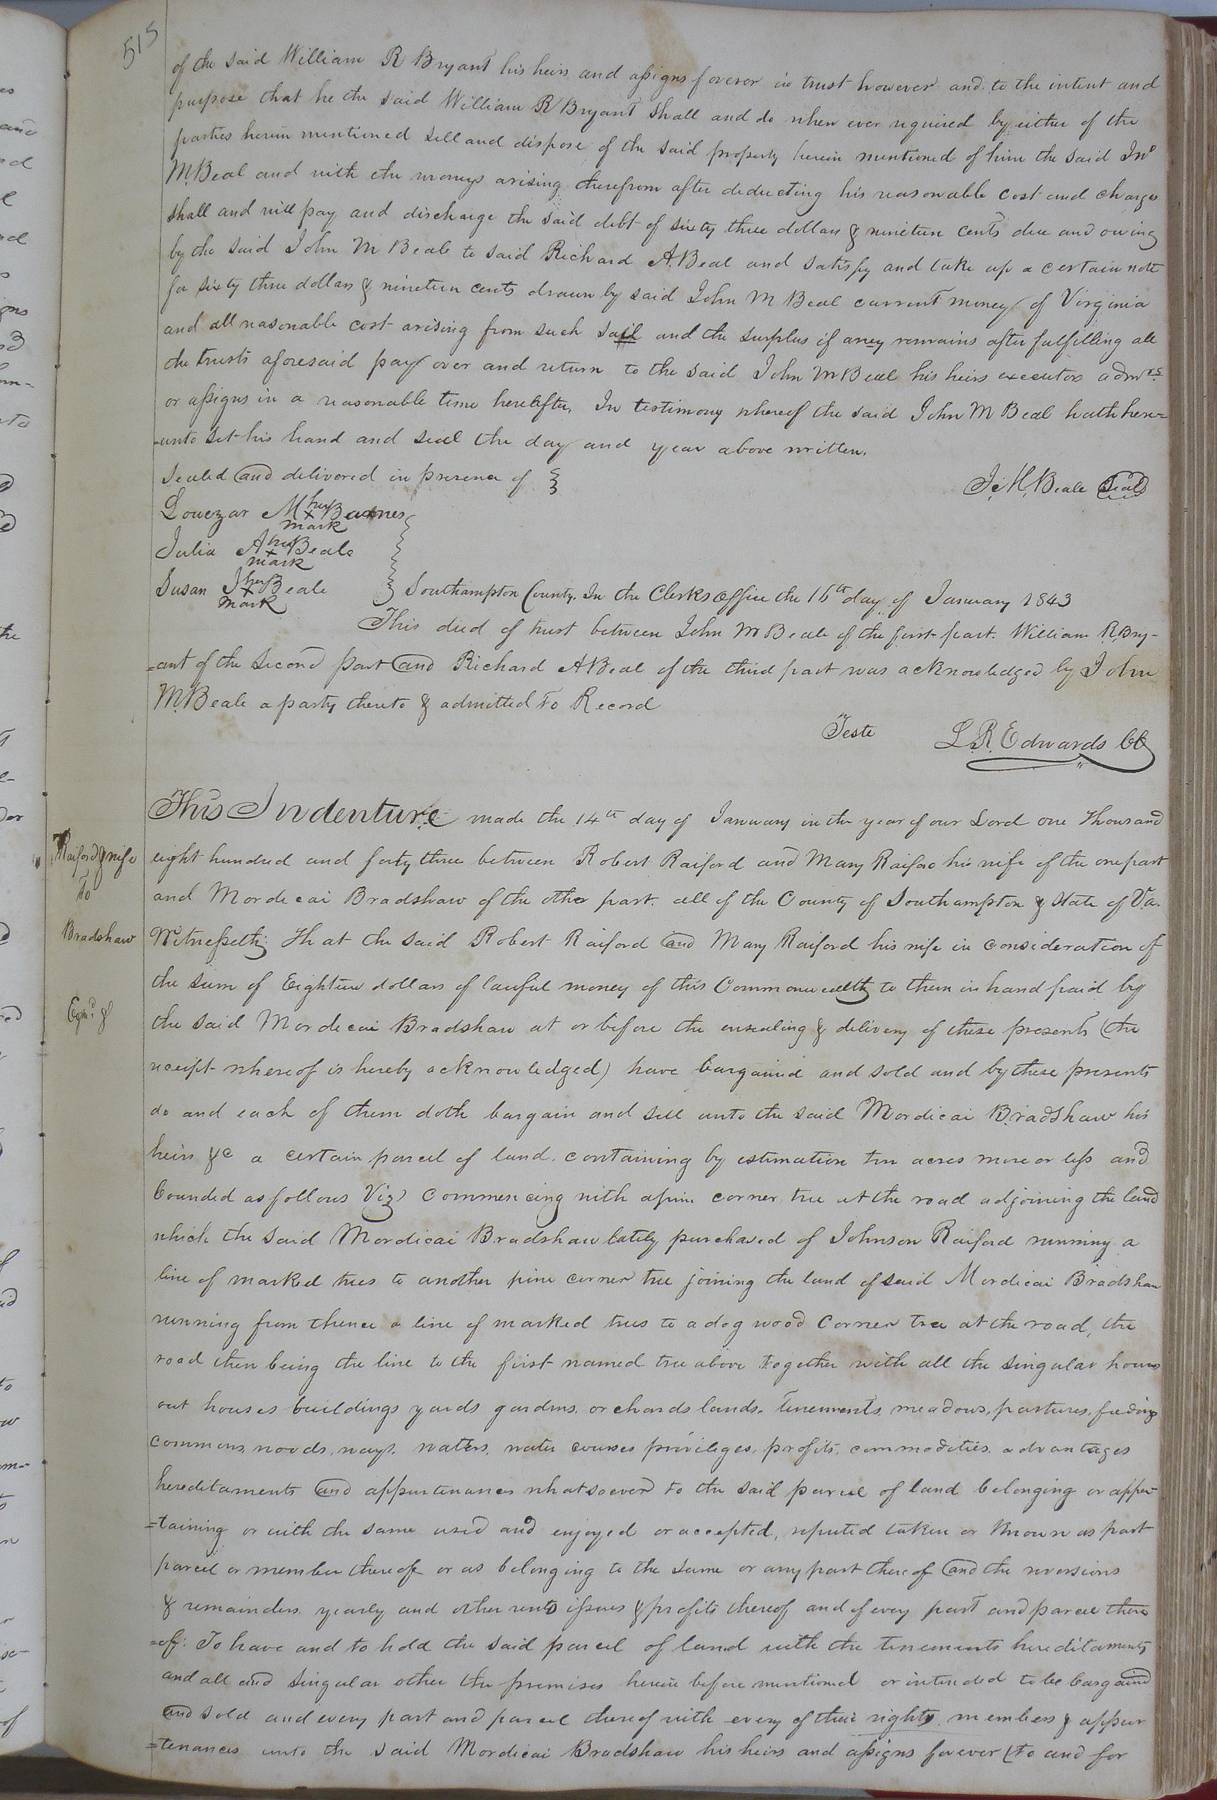 515
of the said William R Bryant his heirs and assigns forever in trust however and to the intent and
purpose that he the said William R Bryant shall and do when ever required by either of the
parties herein mentioned sell and dispose of the said property herein mentioned of him the said Jno
M. Beal and with the moneys arising therefrom after deducting his reasonable cost and charges
shall and will pay and discharge the said debt of sixty three dollars & nineteen cents due and owing
by the said John M Beale to said Richard A. Beal and satisfy and take up a certain note
for sixty three dollars & nineteen cents drawn by said John M Beal current money of Virginia
and all reasonable cost arising from such sail and the surplus if aney remains after fulfilling all
the trusts aforesaid pay over and return to the said John M Beal his heirs executors admrs
or assigns in a reasonable time hereafter, In testimony whereof the said John M Beal hath here=
=unto set his hand and seal the day and year above written.
Sealed and delivered in presence of
J. M. Beale Seal
Louezar M her x mark Barnes
Julia A her x mark Beale
Susan J her x mark Beale
Southampton County. In the Clerks office the 16th day of January 1843
This deed of trust between John M Beale of the first part. William R. Bry-
=ant of the second part and Richard A Beal of the third part was acknowledged by John
M. Beale a party thereto & admitted to Record
Teste L. R. Edwards CC
Raiford & wife
To
Bradshaw
This Indenture made the 14th day of January in the year of our Lord one Thousand
eight hundred and forty three between Robert Raiford and Mary Raiford his wife of the one part
and Mordecai Bradshaw of the other part. all of the County of Southampton & State of Va.
Witnesseth; That the said Robert Raiford and Mary Raiford his wife in consideration of
the sum of Eighteen dollars of lawful money of this Commonwealth to them in hand paid by
the said Mordecai Bradshaw at or before the ensealing & delivery of these presents (the
receipt whereof is hereby acknowledged) have bargained and sold and by these presents
do and each of them doth bargain and sell unto the said Mordicai Bradshaw his
heirs &c a certain parcel of land. containing by estimation ten acres more or less and
bounded as follows Viz) Commencing with a pine corner tree at the road adjoining the land
which the said Mordicai Bradshaw lately purchased of Johnson Raiford running a
line of marked trees to another pine corner tree joining the land of said Mordicai Bradshaw
running from thence a line of marked trees to a dog wood Corner tree at the road, the
road then being the line to the first named tree above together with all the singular houses
out houses buildings yards gardens. orchards lands. tenements, meadows, pastures, feedings
commons, woods, ways, waters, water courses priviliges, profits, commodities, advantages
hereditaments and appurtenances whatsoever to the said parcel of land belonging or apper-
=taining or with the same used and enjoyed or accepted, reputed taken or known as part
parcel or member thereof or as belonging to the same or any part thereof and the reversions
& remainders yearly and other rents issues & profits thereof and of every part and parcel there
=of: To have and to hold the said parcel of land with the tenements hereditaments
and all and singular other the premises herein before mentioned or intended to be bargaind
and sold and every part and parcel thereof with every of their rights members & appur
=tenances unto the said Mordicai Bradshaw his heirs and assigns forever (to and for